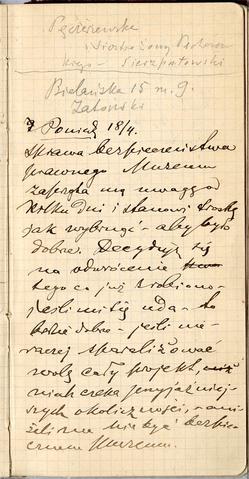 Pęciszewska
i Siostrzony
Sierzputowski
Bielańska 15 m. 9.
Zatorski
7 Ponied 18/4.
Sprawa bezpieczeństwa
prawnego Muzeum
zaprząta mą uwagę od
kilku dni i stanowi troskę
jak wybrnąć – aby było
dobrze. Decyduję się
na odwrócenie
tego co już zrobiono –
jeśli mi się uda – to
będzie dobrze – jeśli nie –
raczej sparaliżować
wolę cały projekt,
niech czeka przyjaźniej-
szych okoliczności, – ani-
żeli ma nie być bezpie-
cznem Muzeum.